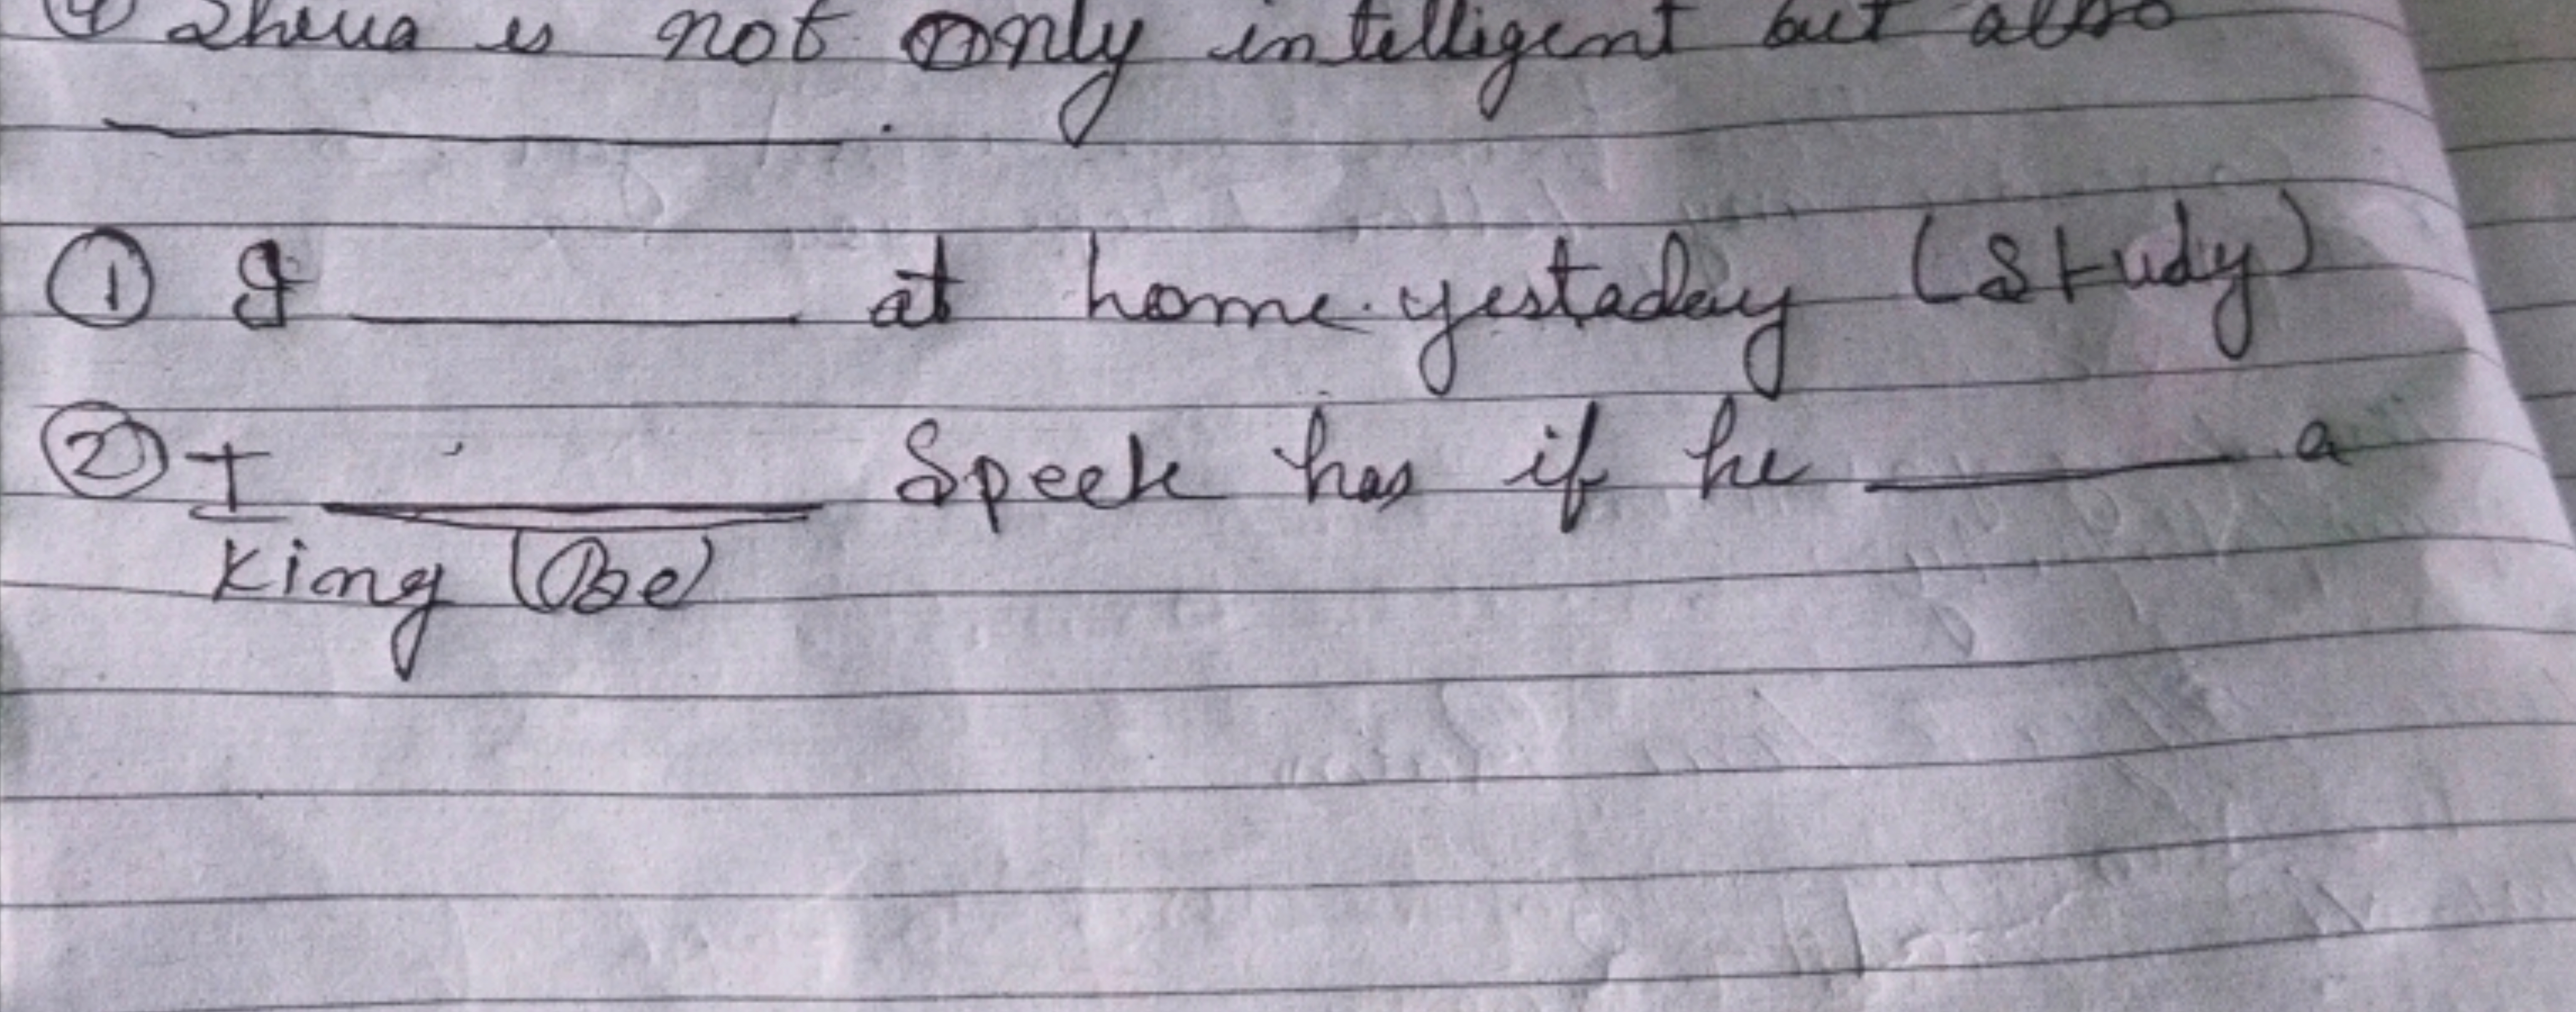 ④ Sheua is not only intelligent but also
__________.
① I ______ at home. yestaday (Study)
② I ______ Speek has if he ______ a
King (Be)